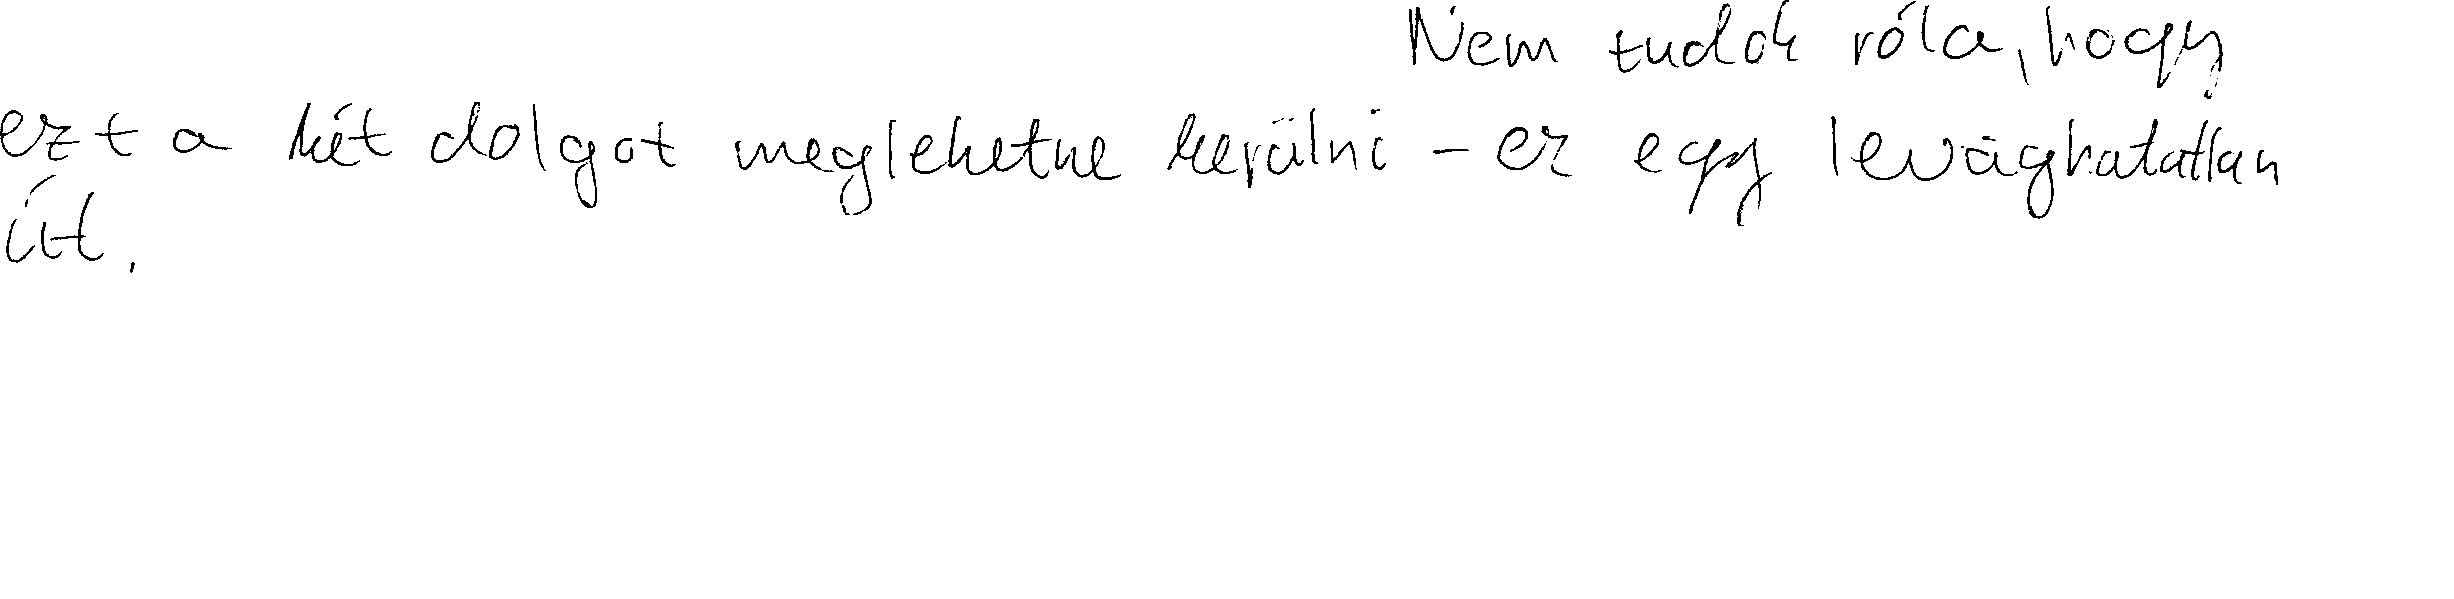 Nem tudok róla, hogy
ezt a két dolgot meglehetne kerülni - ez egy levághatatlan
út.